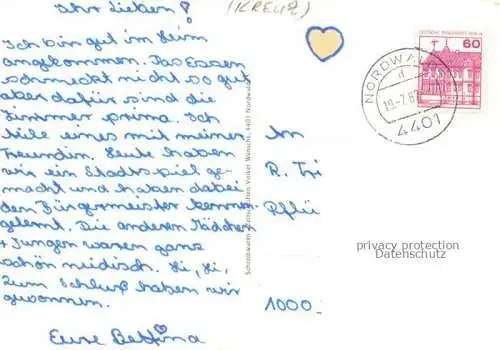 Ihr Lieben!
(KREUZ)
Ich bin gut im Heim
angekommen. Das Essen
schmeckt nicht so gut
aber dafür sind die
Zimmer prima. Ich
teile eines mit meiner
Freundin. Heute haben
wir ein Stadtspiel ge-
macht und haben dabei
den Bürgermeister kennen-
gelernt. Die anderen Mädchen
+ Jungen waren ganz
schön neidisch. Hi, Hi,
Zum Schluß haben wir
gewonnen.
Eure Bettina
Schreibwaren Zeitschriften Volker Wünsche, 4401 Nordwalde
60
DEUTSCHE BUNDESPOST BERLIN
NORDWA
d
19.-7.8
4401
An
R. Tri
Pflü
1000
privacy protection
Datenschutz